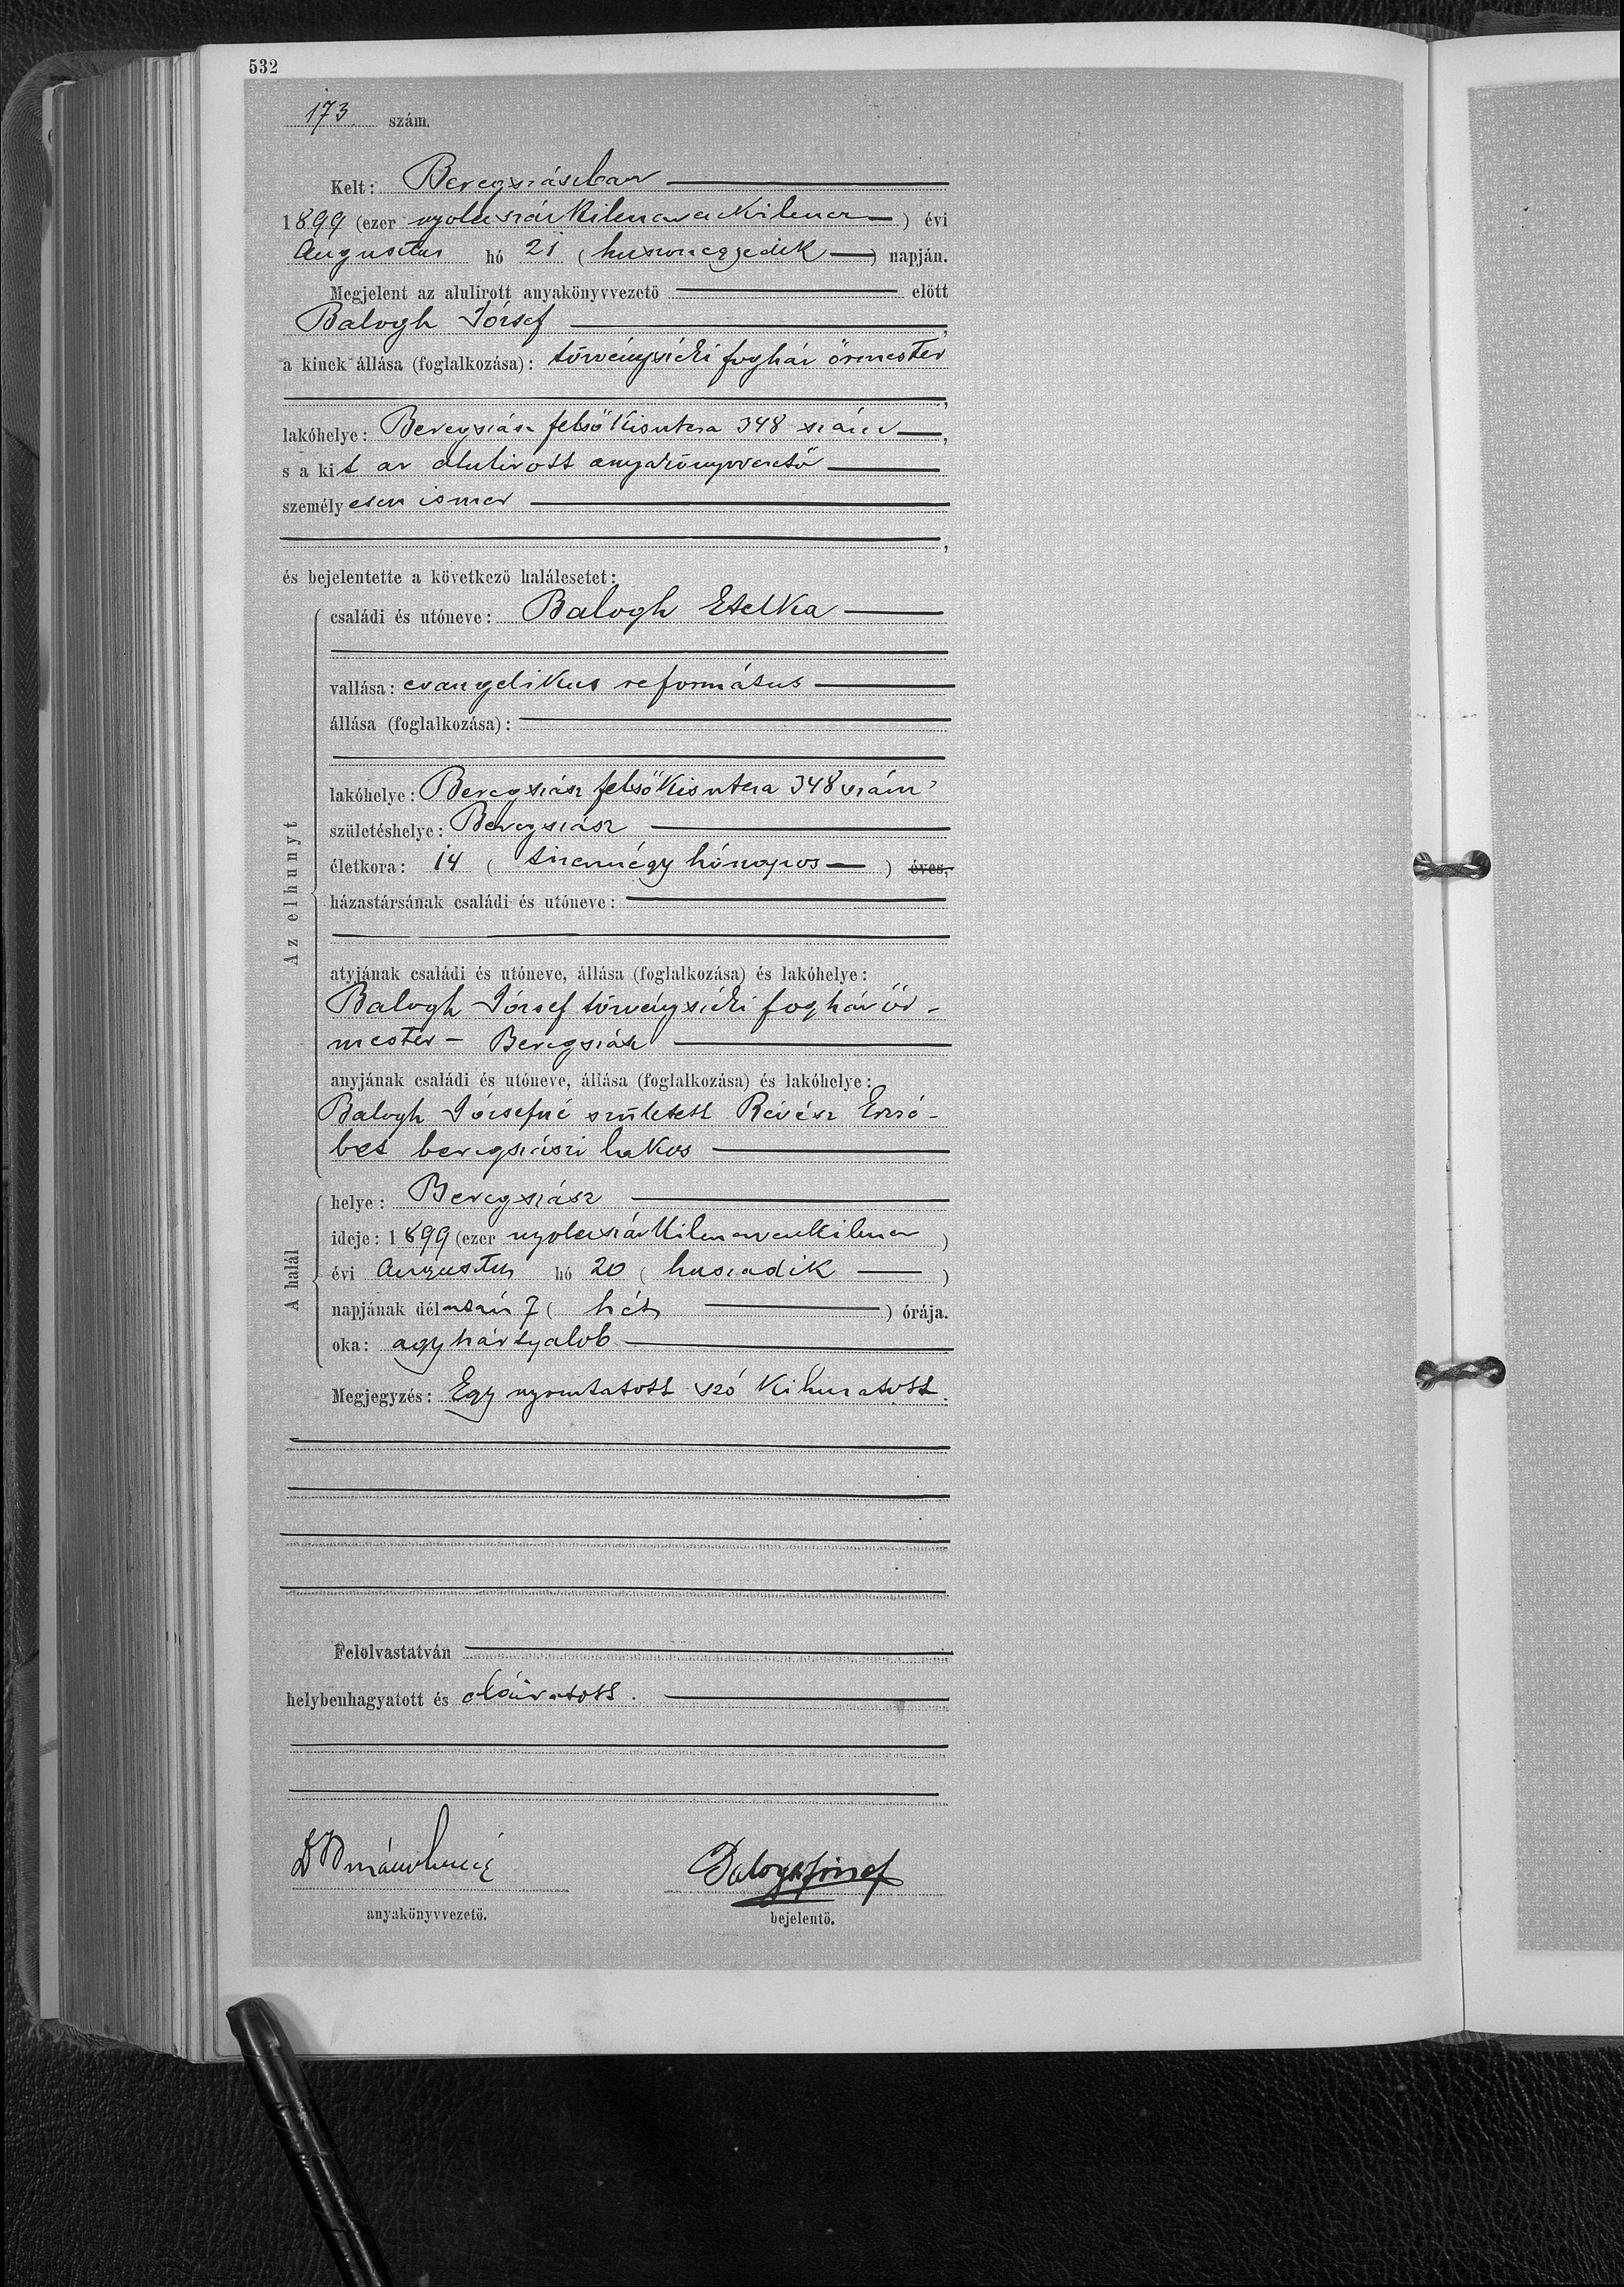 532
173. szám.
Kelt: Beregszászban
1899 (ezer nyolczszázkilenczvenkilencz) évi
Augusztus hó 21 (huszonegyedik) napján.
Megjelent az alulirott anyakönyvvezető előtt
Balogh József,
a kinek állása (foglalkozása): törvényszéki fogház őrmester
lakóhelye: Beregszász felsőkisutcza 348 szám,
s a kit az alulirott anyakönyvvezető
személyesen ismer
és bejelentette a következő halálesetet:
Az elhunyt
családi és utóneve: Balogh Etelka
vallása: evangelikus református
állása (foglalkozása):
lakóhelye: Beregszász felsőkisutcza 348 szám
születéshelye: Beregszász
életkora: 14 (tizennégy hónapos) éves,
házastársának családi és utóneve:
atyjának családi és utóneve, állása (foglalkozása) és lakóhelye:
Balogh József törvényszéki fogház őr-
mester - Beregszász
anyjának családi és utóneve, állása (foglalkozása) és lakóhelye:
Balogh Józsefné született Révész Erzsé-
bet beregszászi lakos
A halál
helye: Beregszász
ideje: 1899 (ezer nyolczszázkilenczvenkilencz)
évi Augusztus hó 20 (huszadik)
napjának délután 7 (hét) órája.
oka: agyhártyalob
Megjegyzés: Egy nyomtatott szó kihuzatott.
Felolvastatván
helybenhagyatott és aláiratott.
Balogh József
anyakönyvvezető.
bejelentő.